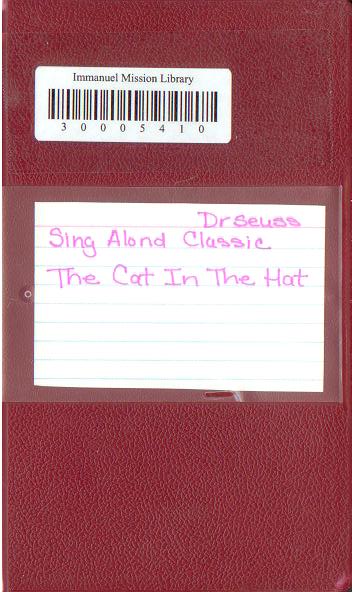 Immanuel Mission Library
3 0 0 0 5 4 1 0
Dr Seuss
Sing Alond Classic
The Cat In The Hat